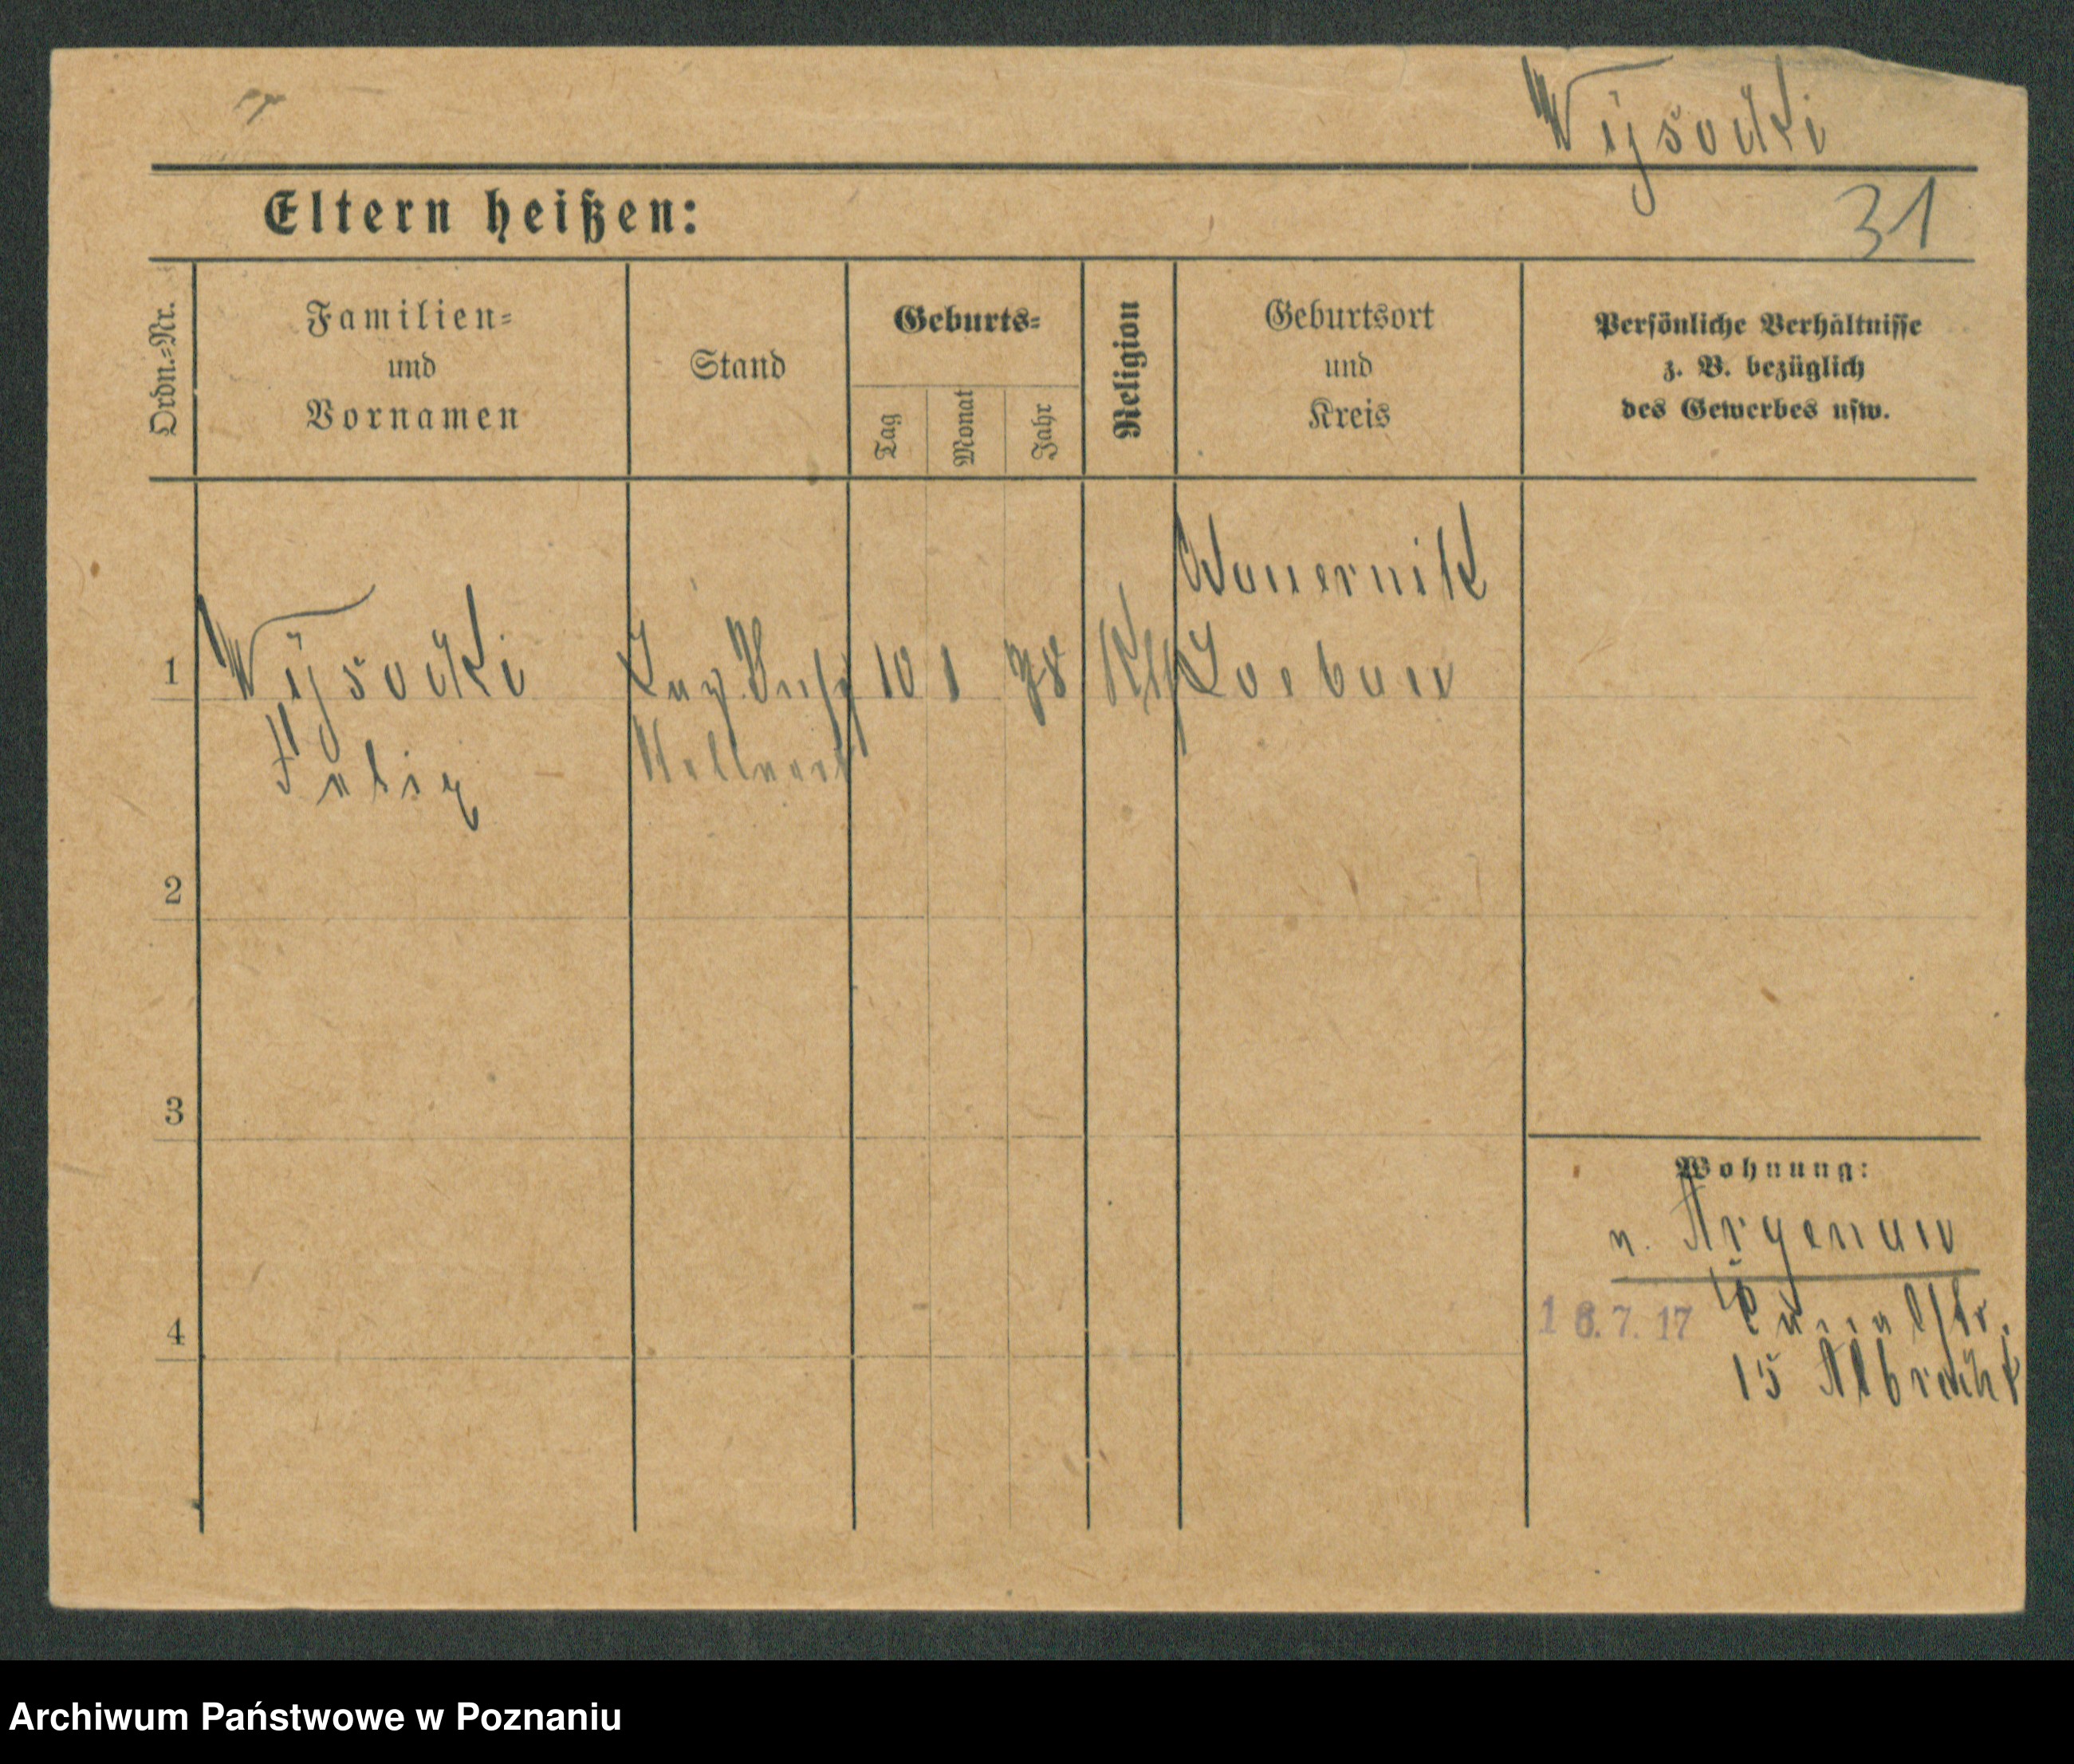 Wysocki
Eltern heißen:
31
Ordn.-Nr.
Familien-
und
Vornamen
Stand
Geburts-
Tag
Monat
Jahr
Religion
Geburtsort
und
Kreis
Persönliche Verhältnisse
z. B. bezüglich
des Gewerbes usw.
1
Wysocki
Felix
10
1
78
Wawernitz
Loebau
2
3
4
Wohnung:
n. Argenau
16.7.17
15 Albrecht
Archiwum Państwowe w Poznaniu